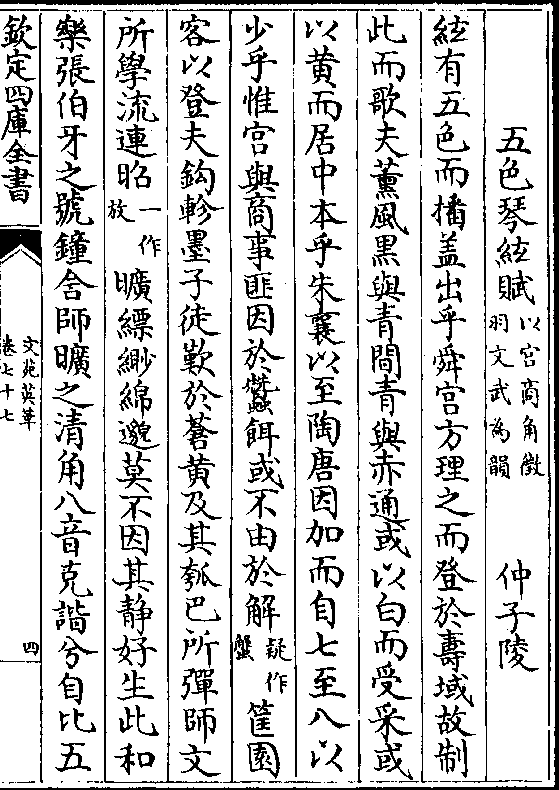 五色琴絃賦 以宮商角徵羽文武為韻 仲子陵
絃有五色而播盖出乎舜宮方理之而登於壽域故制
此而歌夫薰風黒與青間青與赤通或以白而受采或
以黄而居中本乎朱襄以至陶唐因加而自七至八以
少乎惟宫與商事匪因於蠶餌或不由於解疑作蟹筐園
客以登夫鈎軫墨子徒歎於蒼黄及其瓠巴所彈師文
所學流連昭一作放曠縹緲綿邈莫不因其静好生此和
樂張伯牙之號鐘舍師曠之清角八音克諧兮自比五
欽定四庫全書
文苑英華
卷七十七
四